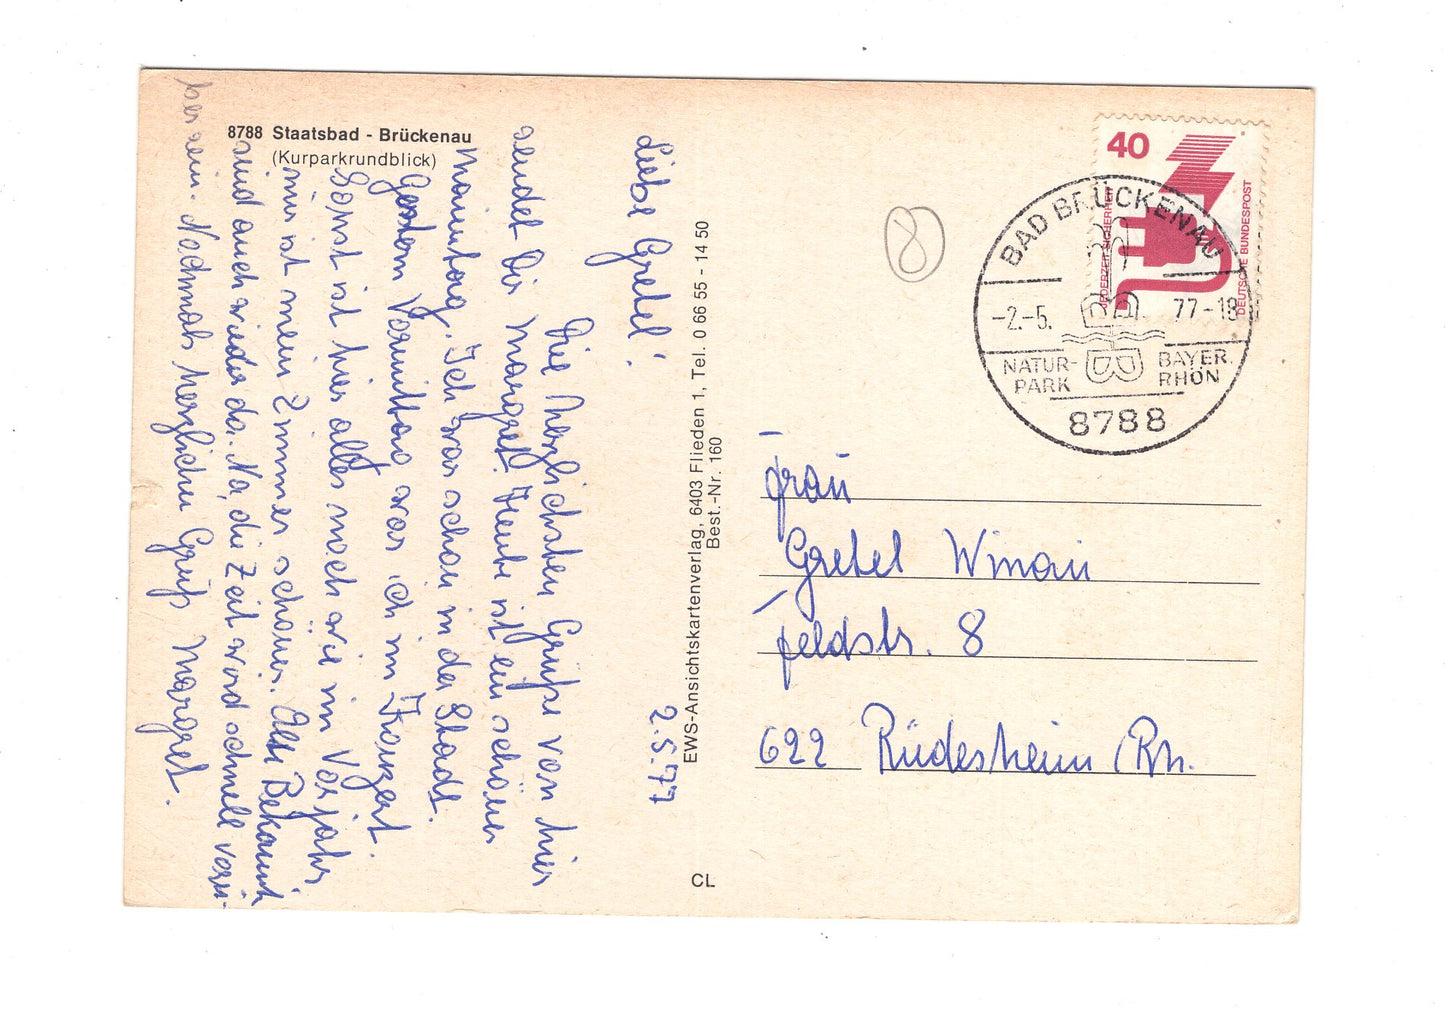 8788 Staatsbad - Brückenau
(Kurparkrundblick)
2.5.77
Liebe Gretel!
Die herzlichsten Grüße von hier
sendet Dir Margret. Heute ist ein schöner
Maientag. Ich war schon in der Stadt.
Gestern Vormittag war ich im Konzert.
Sonst ist hier alles noch wie im Vorjahr
nur ist mein Zimmer schöner. Alte Bekannte
sind auch wieder da. Na, die Zeit wird schnell vorü-
ber sein. Nochmals herzlichen Gruß Margret.
EWS-Ansichtskartenverlag, 6403 Flieden 1, Tel. 0 66 55 - 14 50
Best.-Nr. 160
CL
8
40
JEDERZEIT SICHERHEIT
DEUTSCHE BUNDESPOST
BAD BRÜCKENAU
-2.-5. 77-18
NATUR-
PARK
BAYER.
RHÖN
8788
Frau
Gretel
Feldstr. 8
622 Rüdesheim/Rh.